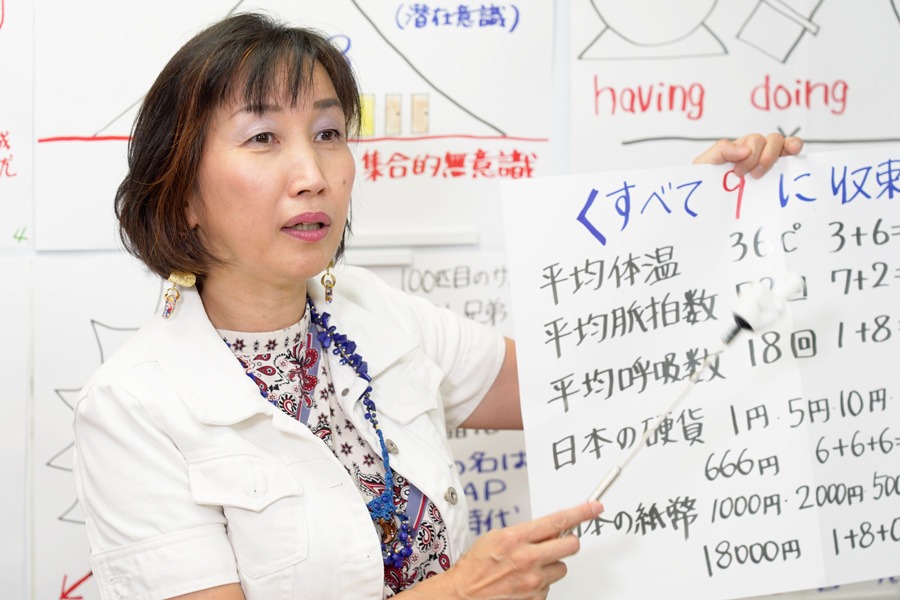 (潜在意識)
having doing
集合的無意識
くすべて9に収束
平均体温 36℃ 3+6=
平均脈拍数 回 7+2=
平均呼吸数 18回 1+8=
日本の硬貨 1円・5円・10円・
666円 6+6+6=
本の紙幣 1000円・2000円・500
18000円 1+8+0
100匹目のサ
兄弟
の名は
AP
時代
4